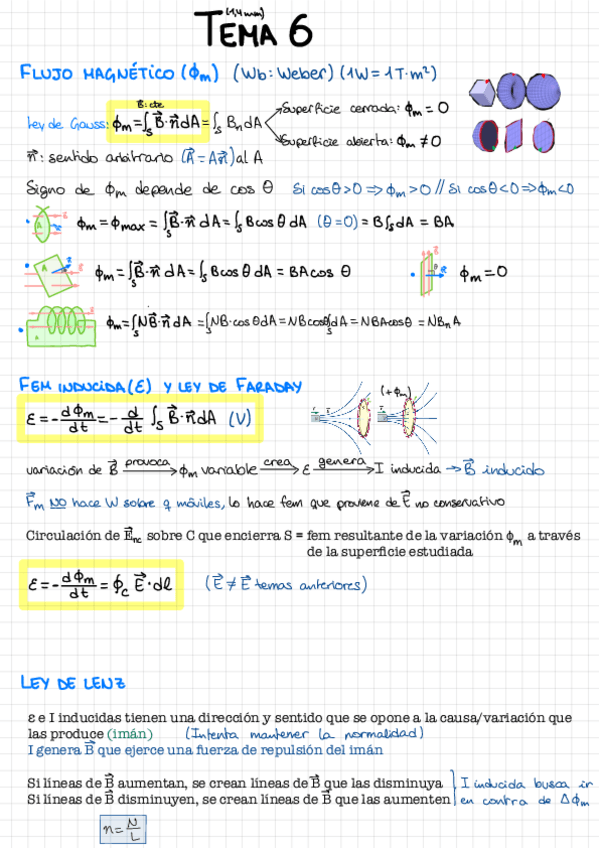 (1,4 mm)
TEMA 6
FLUJO MAGNÉTICO (ϕm) (Wb: Weber) (1W = 1T·m²)
B: cte
Ley de Gauss: ϕm = ∫s B⃗·n⃗ dA = ∫s Bn dA
Superficie cerrada: ϕm = 0
Superficie abierta: ϕm ≠ 0
n⃗: sentido arbitrario (A⃗ = An⃗) al A
Signo de ϕm depende de cos θ Si cosθ>0 ⇒ ϕm>0 // Si cosθ<0 ⇒ ϕm<0
ϕm = ϕmax = ∫s B⃗·n⃗ dA = ∫s B cos θ dA (θ=0) = B∫s dA = BA
ϕm = ∫s B⃗·n⃗ dA = ∫s B cos θ dA = BA cos θ
ϕm = 0
ϕm = ∫s NB⃗·n⃗ dA = ∫s NB·cosθ dA = NB cosθ ∫s dA = NBA cosθ = NBn A
FEM INDUCIDA (ε) Y LEY DE FARADAY
ε = -dϕm/dt = -d/dt ∫s B⃗·n⃗ dA (V)
(+ϕm)
variación de B⃗ provoca → ϕm variable crea → ε genera → I inducida → B⃗ inducido
F⃗m NO hace W sobre q móviles, lo hace fem que proviene de E⃗ no conservativo
Circulación de E⃗nc sobre C que encierra S = fem resultante de la variación ϕm a través
de la superficie estudiada
ε = -dϕm/dt = ∮c E⃗·dl (E⃗ ≠ E⃗ temas anteriores)
LEY DE LENZ
ε e I inducidas tienen una dirección y sentido que se opone a la causa/variación que
las produce (imán) (Intenta mantener la normalidad)
I genera B⃗ que ejerce una fuerza de repulsión del imán
Si líneas de B⃗ aumentan, se crean líneas de B⃗ que las disminuya
Si líneas de B⃗ disminuyen, se crean líneas de B⃗ que las aumenten
I inducida busca ir
en contra de Δϕm
n = N/L